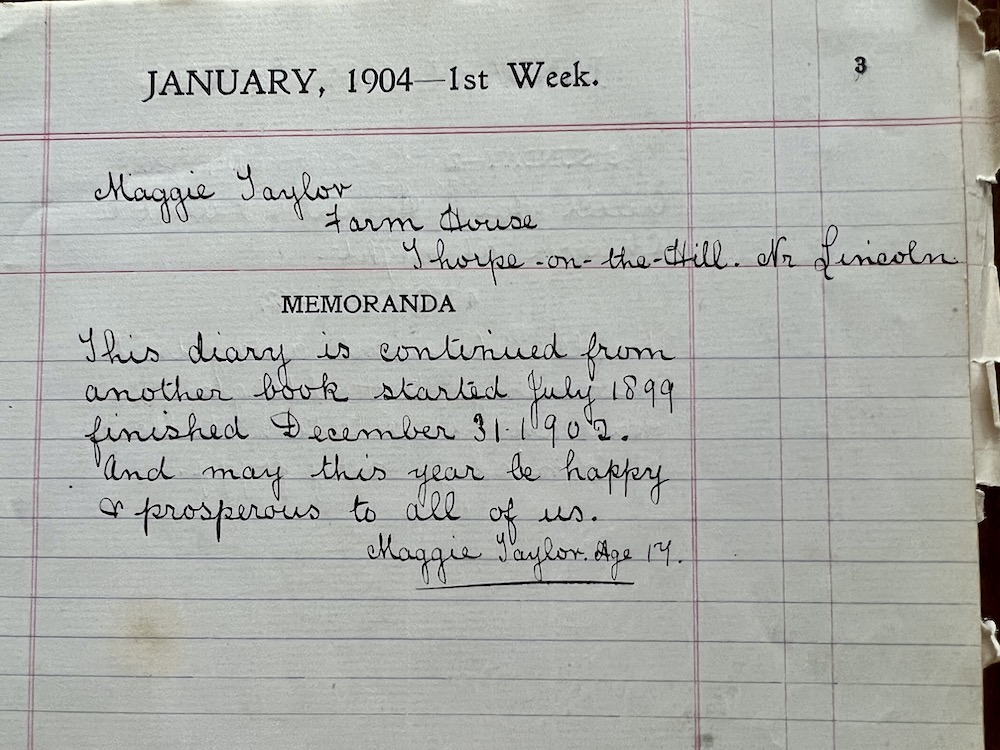 JANUARY, 1904—1st Week.
3
Maggie Taylor
Farm House
Thorpe-on-the-Hill. Nr Lincoln.
MEMORANDA
This diary is continued from
another book started July 1899
finished December 31. 1902.
And may this year be happy
& prosperous to all of us.
Maggie Taylor. Age 17.